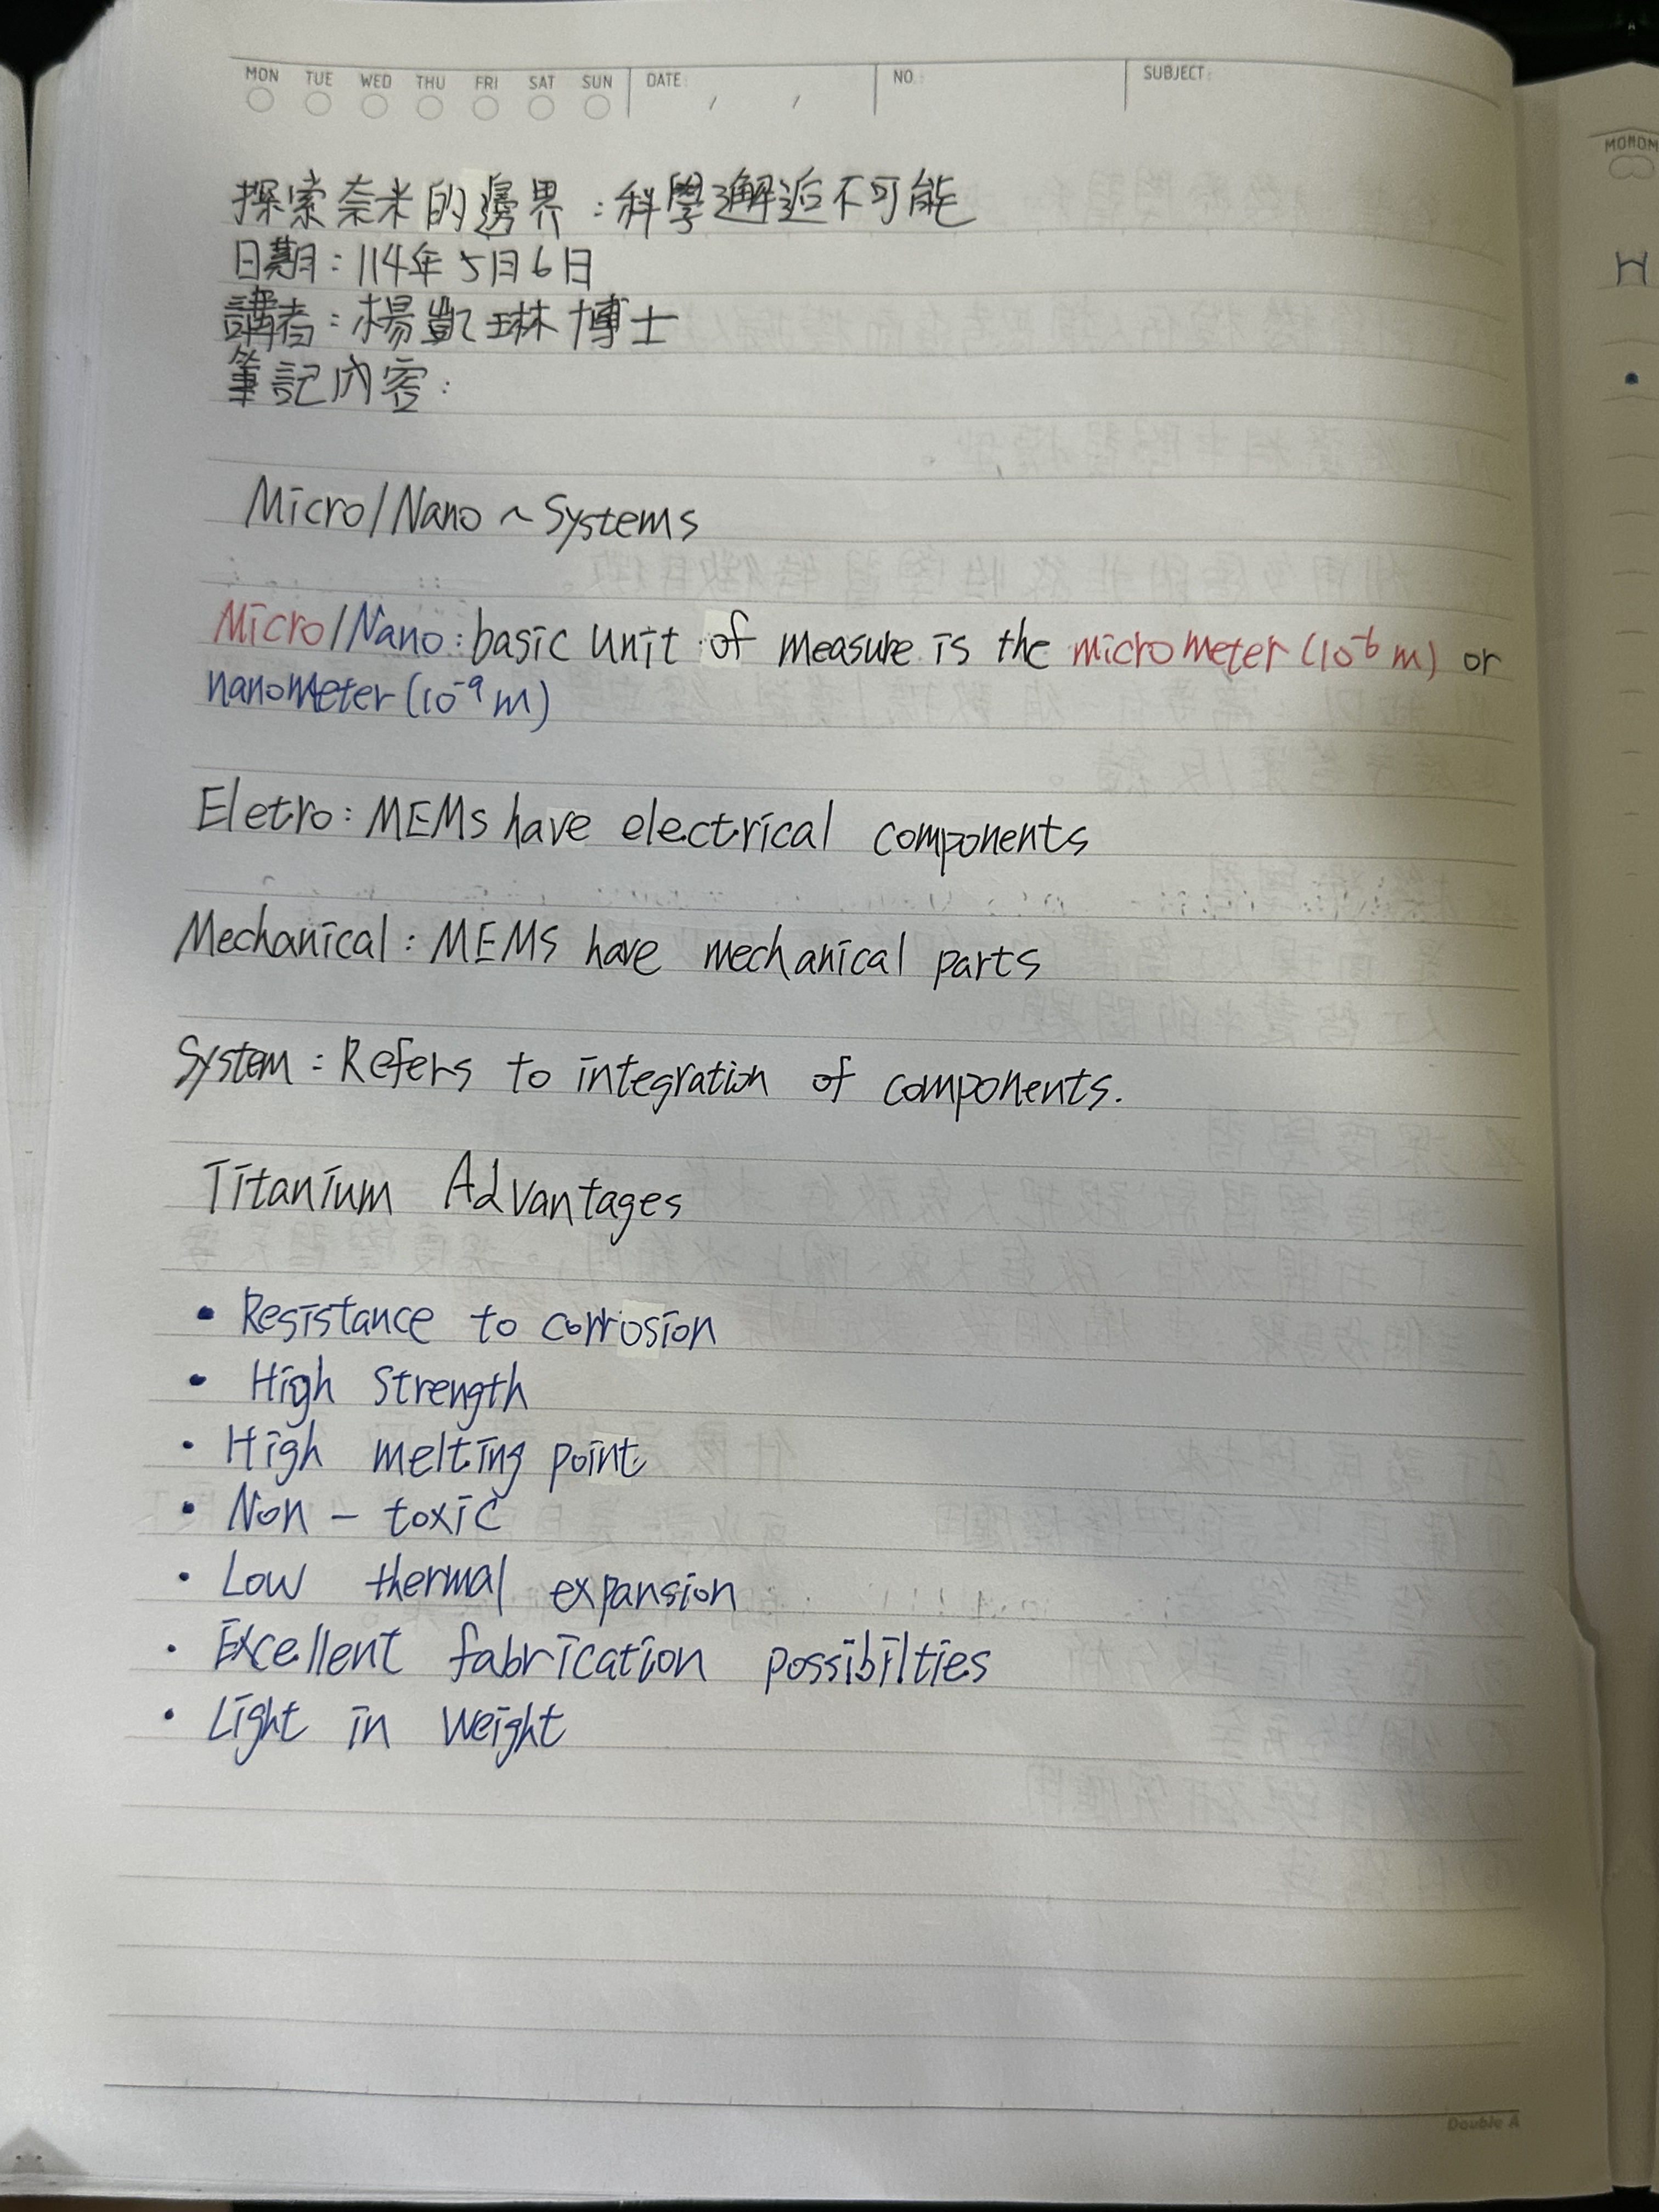 MON TUE WED THU FRI SAT SUN DATE: / / NO.: SUBJECT:
探索奈米的邊界：科學邂逅不可能
日期：114年5月6日
講者：楊凱琳博士
筆記內容：
Micro/Nano ~ Systems
Micro/Nano : basic unit of measure is the micrometer (10⁻⁶ m) or
nanometer (10⁻⁹ m)
Eletro : MEMs have electrical components
Mechanical : MEMS have mechanical parts
System : Refers to integration of components.
Titanium Advantages
• Resistance to corrosion
• High Strength
• High melting point
• Non - toxic
• Low thermal expansion
• Excellent fabrication possibilties
• Light in weight
Double A